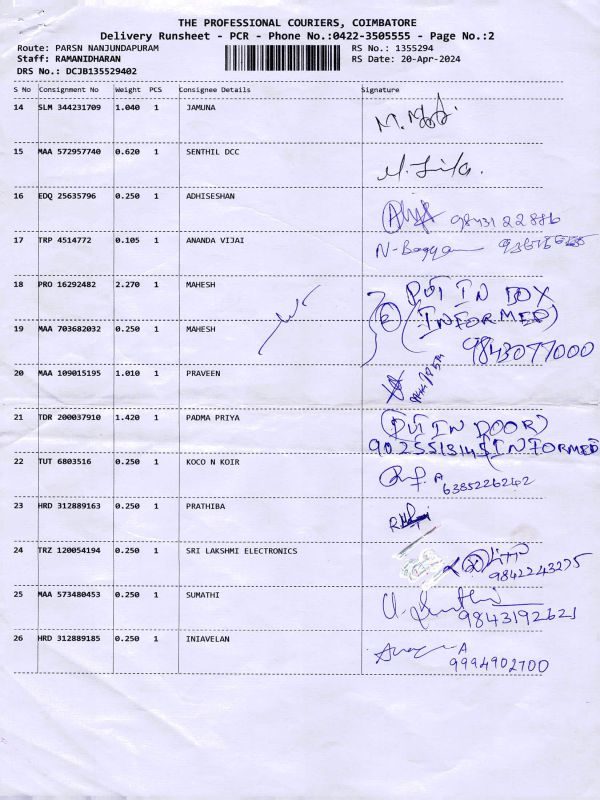 THE PROFESSIONAL COURIERS, COIMBATORE
Delivery Runsheet - PCR - Phone No.:0422-3505555 - Page No.:2
Route: PARSN NANJUNDAPURAM RS No.: 1355294
Staff: RAMANIDHARAN RS Date: 20-Apr-2024
DRS No.: DCJB135529402
S No Consignment No Weight PCS Consignee Details Signature
14 SLM 344231709 1.040 1 JAMUNA
15 MAA 572957740 0.620 1 SENTHIL DCC
16 EDQ 25635796 0.250 1 ADHISESHAN 9843122886
17 TRP 4514772 0.105 1 ANANDA VIJAI N-Bagya
18 PRO 16292482 2.270 1 MAHESH PUT IN BOX
(INFORMED)
19 MAA 703682032 0.250 1 MAHESH
9843077000
20 MAA 109015195 1.010 1 PRAVEEN
21 TDR 200037910 1.420 1 PADMA PRIYA (PUT IN DOOR)
INFORMED
22 TUT 6803516 0.250 1 KOCO N KOIR
6385226242
23 HRD 312889163 0.250 1 PRATHIBA
24 TRZ 120054194 0.250 1 SRI LAKSHMI ELECTRONICS
9842243275
25 MAA 573480453 0.250 1 SUMATHI
9843192621
26 HRD 312889185 0.250 1 INIAVELAN
9994902700